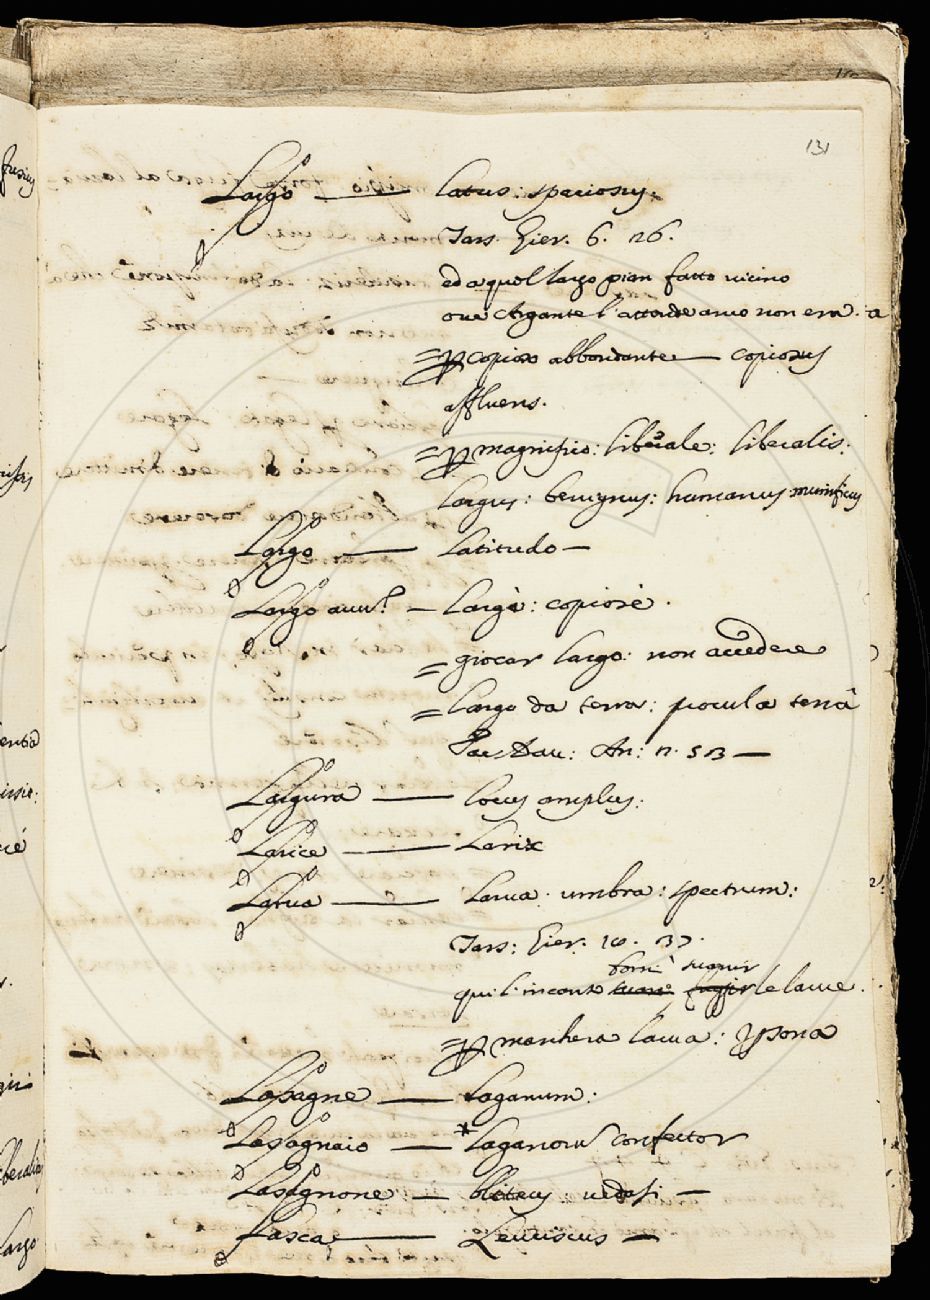 131
Largo — latus: spaciosus.
Tars. Gier. 6. 26.
ed a quel largo pian fatto vicino
ove Argante l'attende anco non era.
= p copioso abbondante — copiosus
affluens.
= p magnifico: liberale: liberalis:
largus: benignus: humanus munificus
Largo — Latitudo —
Largo avv. — Largè: copiosè.
= giocar largo: non accedere
= largo da terra: procul a terrâ
Largura — locus amplus:
Larice — Larix
Larva — Larva. umbra: spectrum:
Tars: Gier:
qui l'incanto fornì, sparir le larve.
= p maschera larva: psona
Lasagne — Laganum:
Lasagnaio — * laganorum confector
Lasagnone — bliteus vedasi —
Lasca — Leuciscus —